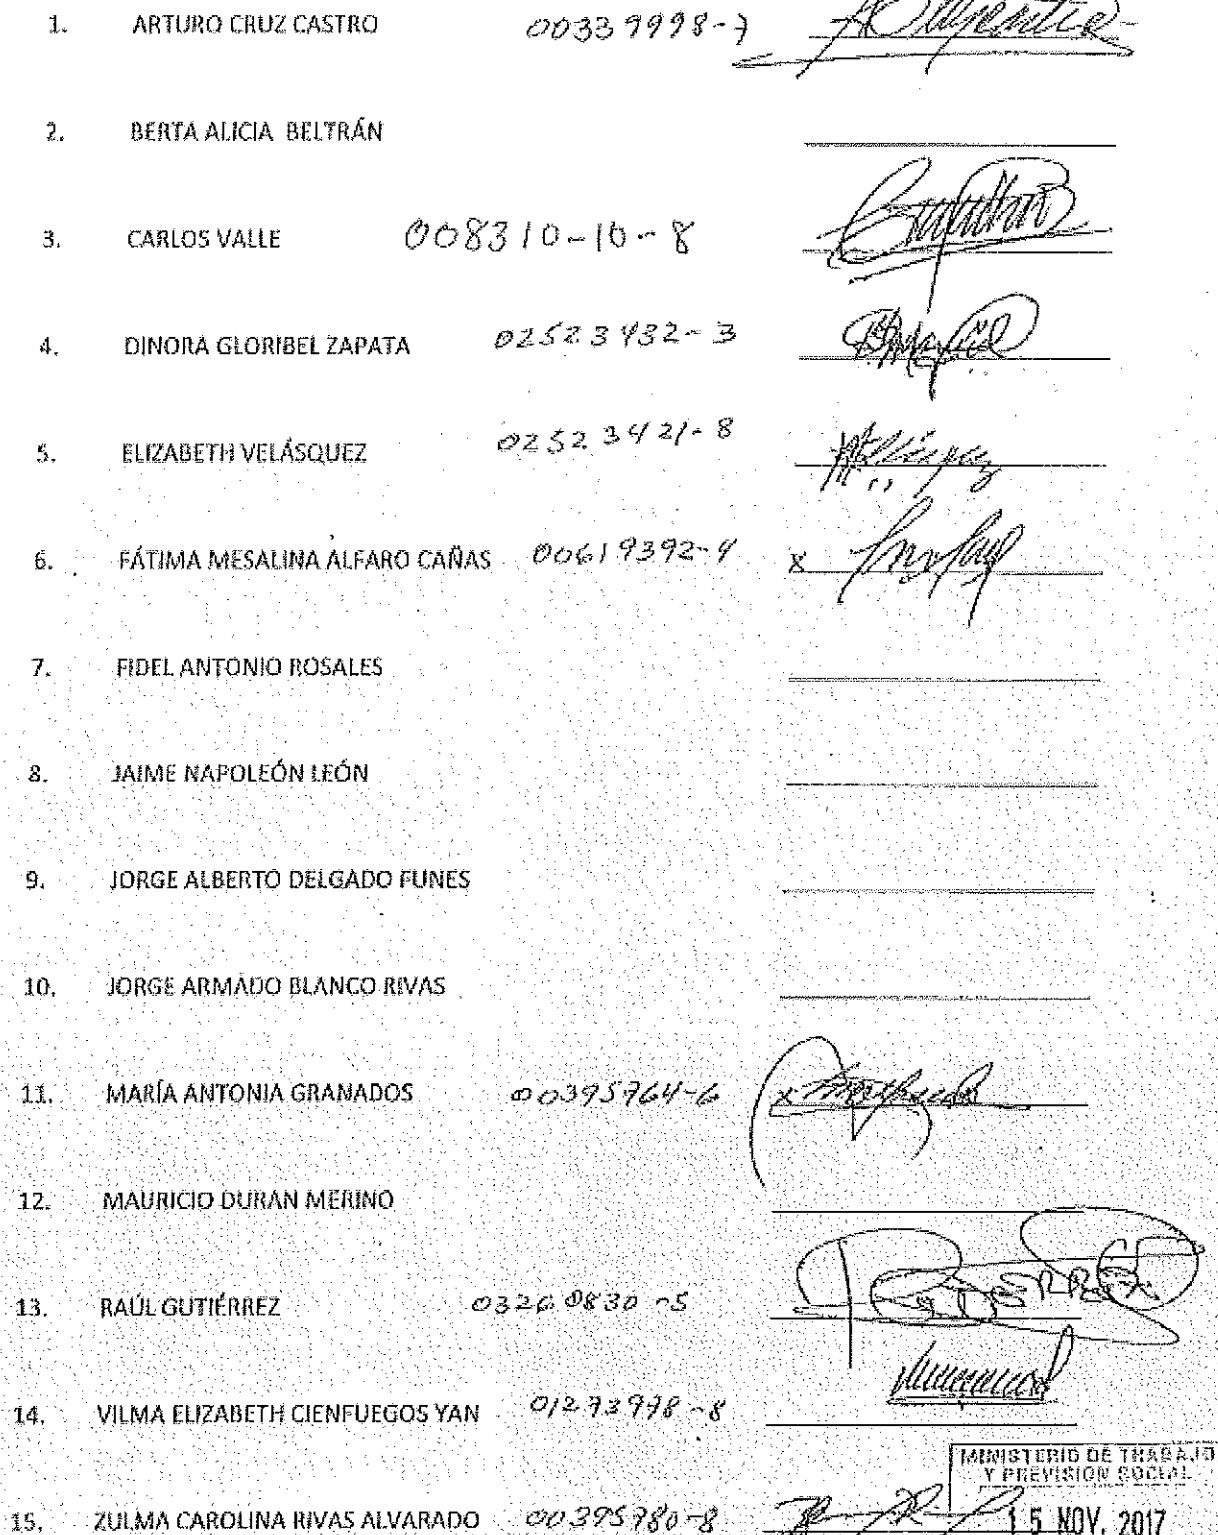 1. ARTURO CRUZ CASTRO 00339998-7
2. BERTA ALICIA BELTRÁN
3. CARLOS VALLE 008310-10-8
4. DINORA GLORIBEL ZAPATA 02523432-3
5. ELIZABETH VELÁSQUEZ 02523421-8
6. FÁTIMA MESALINA ALFARO CAÑAS 00619392-4 x
7. FIDEL ANTONIO ROSALES
8. JAIME NAPOLEÓN LEÓN
9. JORGE ALBERTO DELGADO FUNES
10. JORGE ARMADO BLANCO RIVAS
11. MARÍA ANTONIA GRANADOS 00395764-6 x
12. MAURICIO DURAN MERINO
13. RAÚL GUTIÉRREZ 03260830-5
14. VILMA ELIZABETH CIENFUEGOS YAN 01273978-8
MINISTERIO DE TRABAJO
Y PREVISION SOCIAL
15. ZULMA CAROLINA RIVAS ALVARADO 00395780-8
15 NOV. 2017